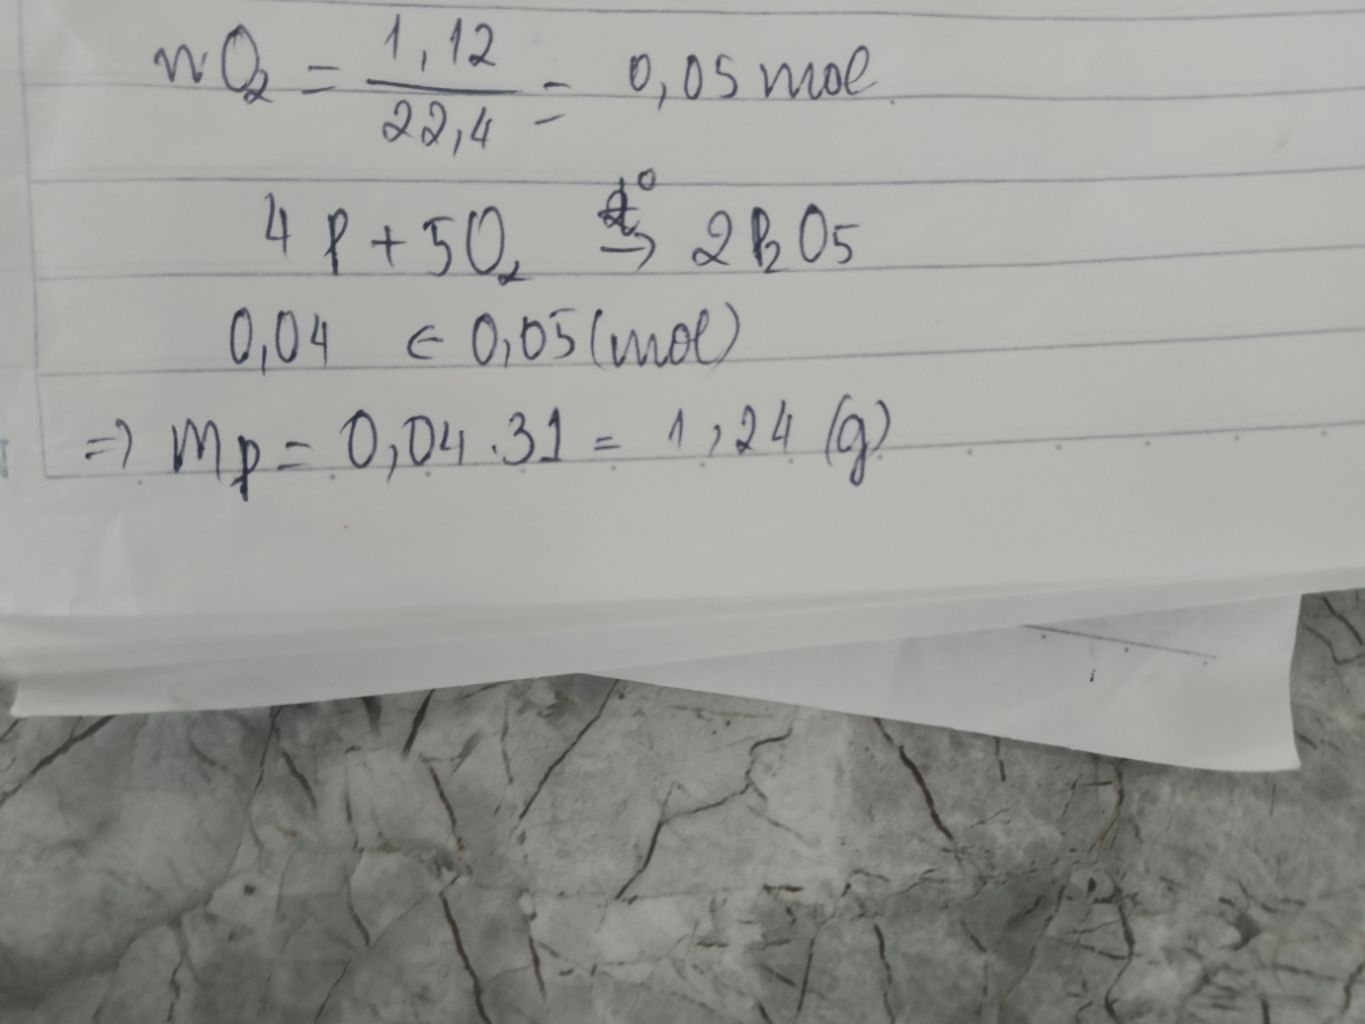 nO₂ = 1,12 / 22,4 = 0,05 mol
4P + 5O₂ t° → 2P₂O5
0,04 ← 0,05 (mol)
=> mp = 0,04 . 31 = 1,24 (g)